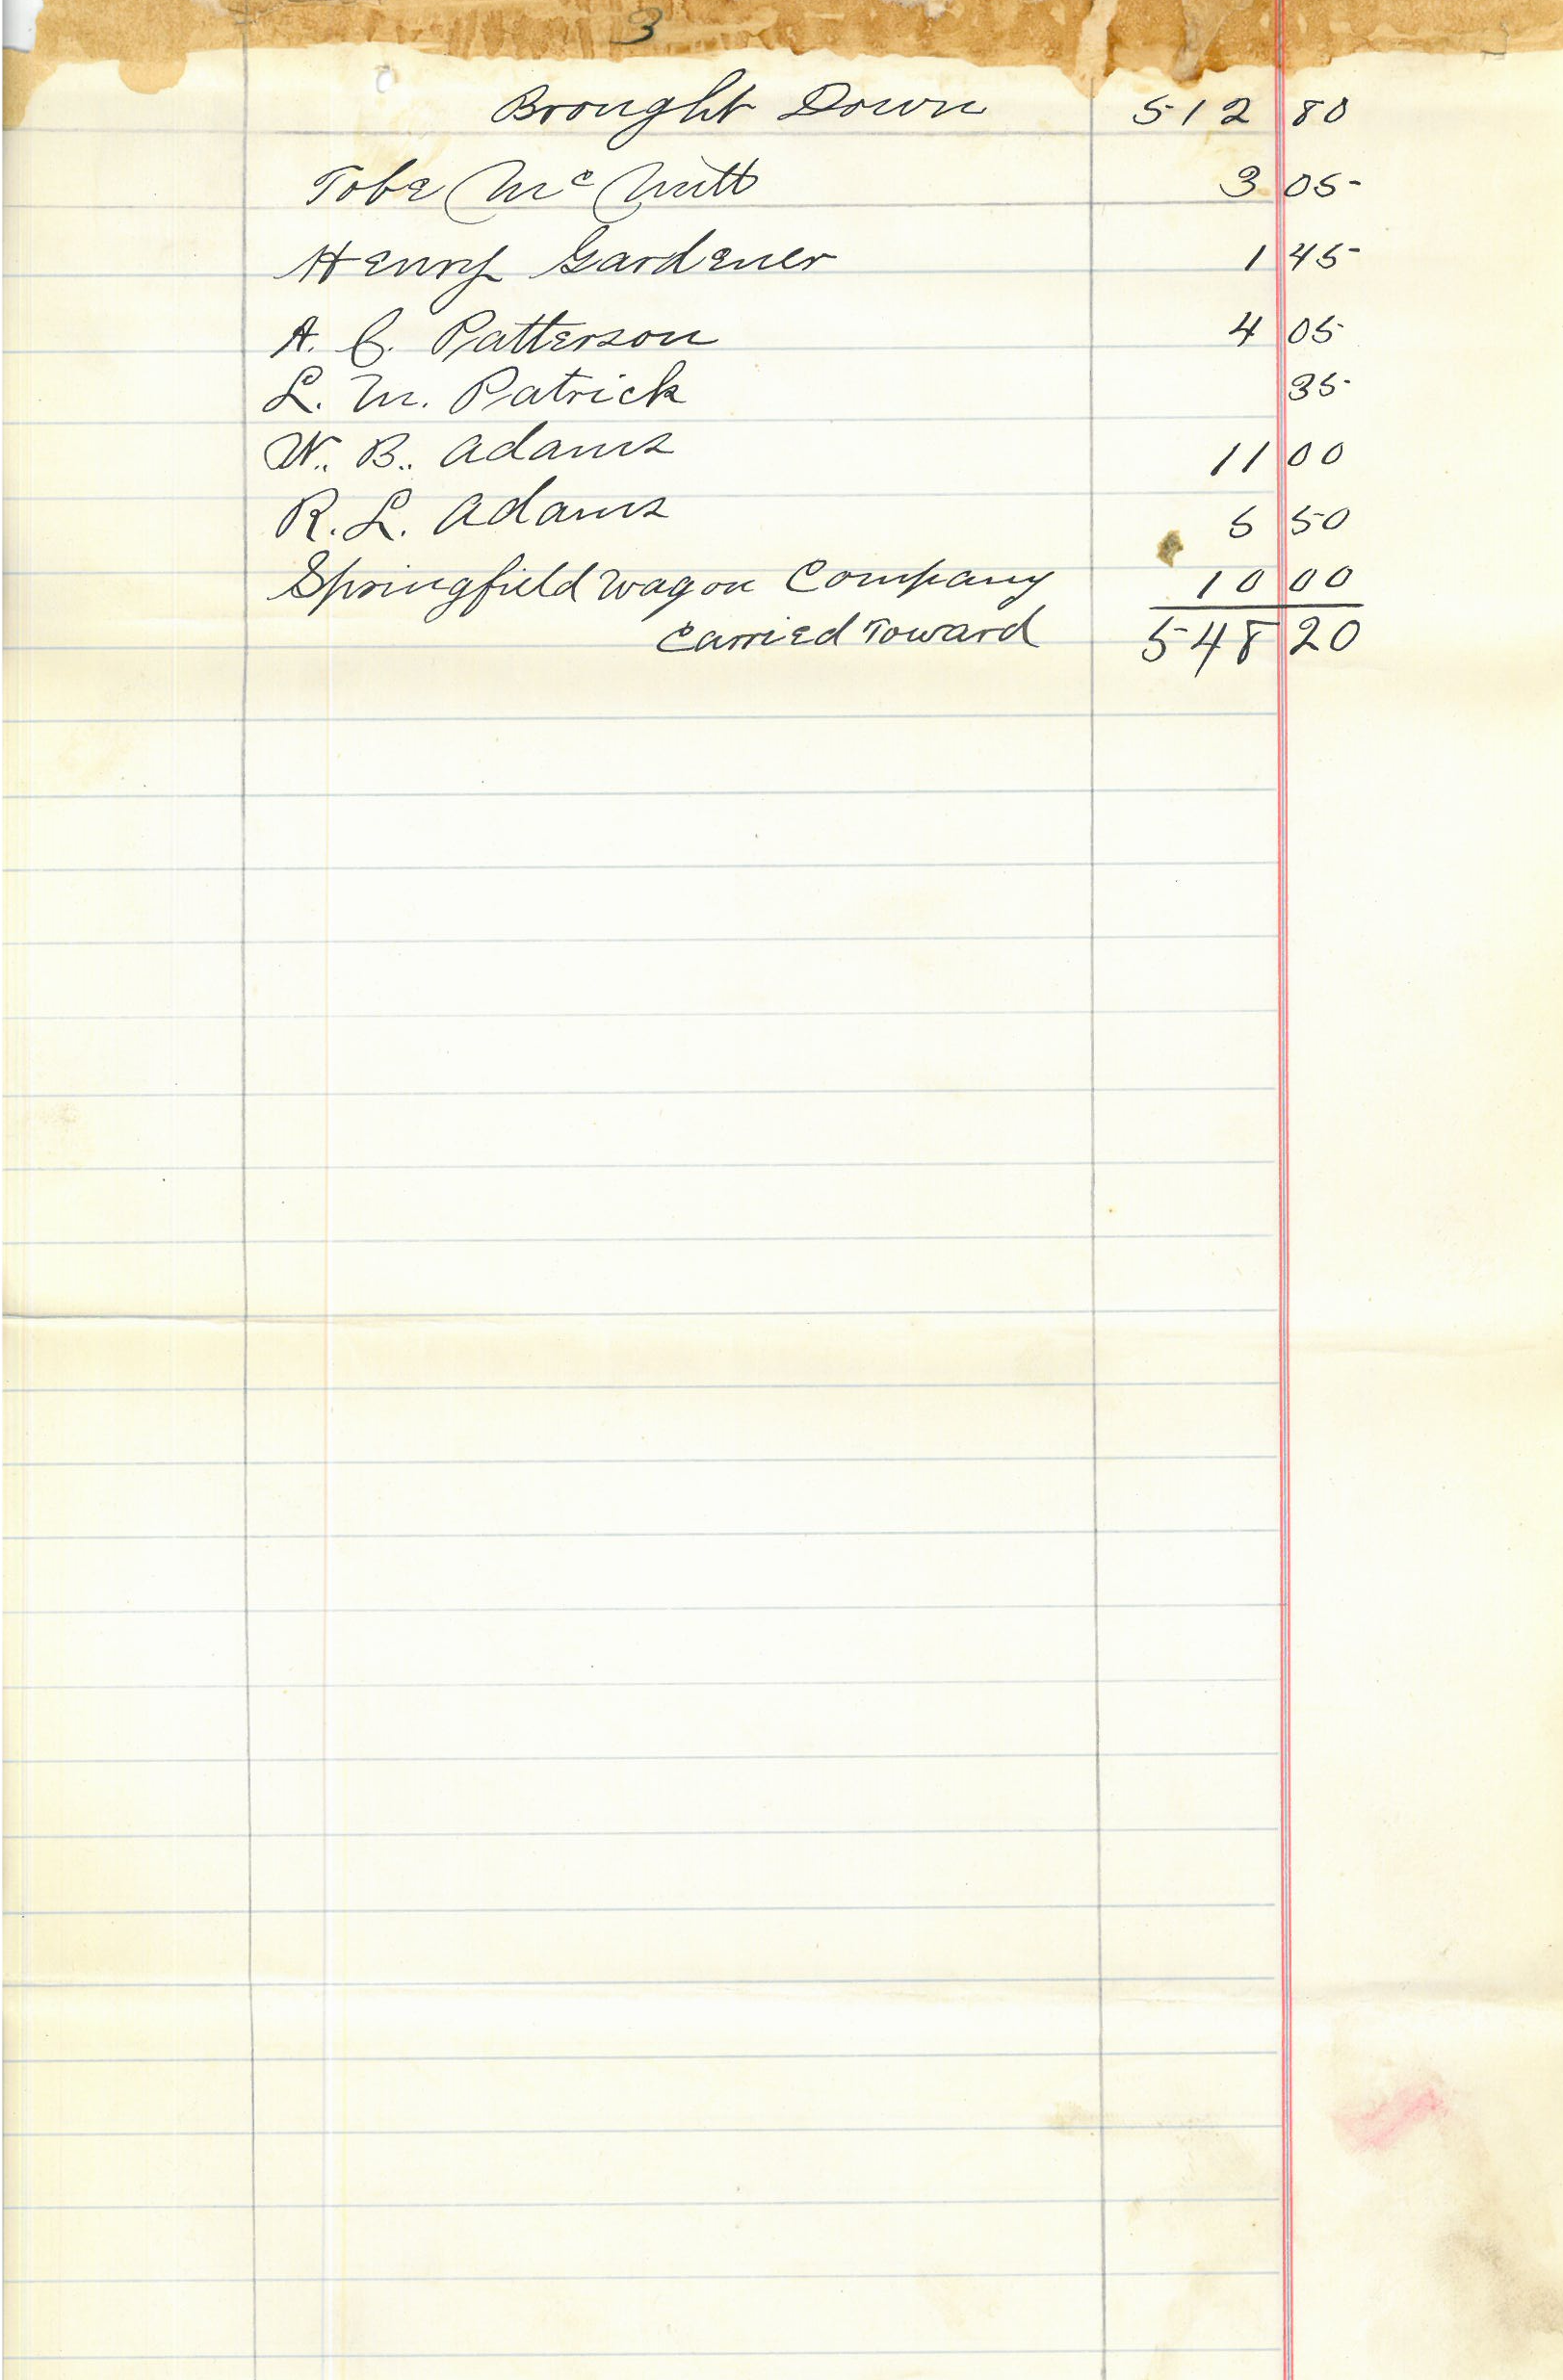 3
Brought Down 512 80
Tobe Mc Nutt 3 05
Henry Gardener 1 45
A. C. Patterson 4 05
L. M. Patrick 35
W. B. Adams 11 00
R. L. Adams 5 50
Springfield Wagon Company 10 00
Carried Toward 548 20